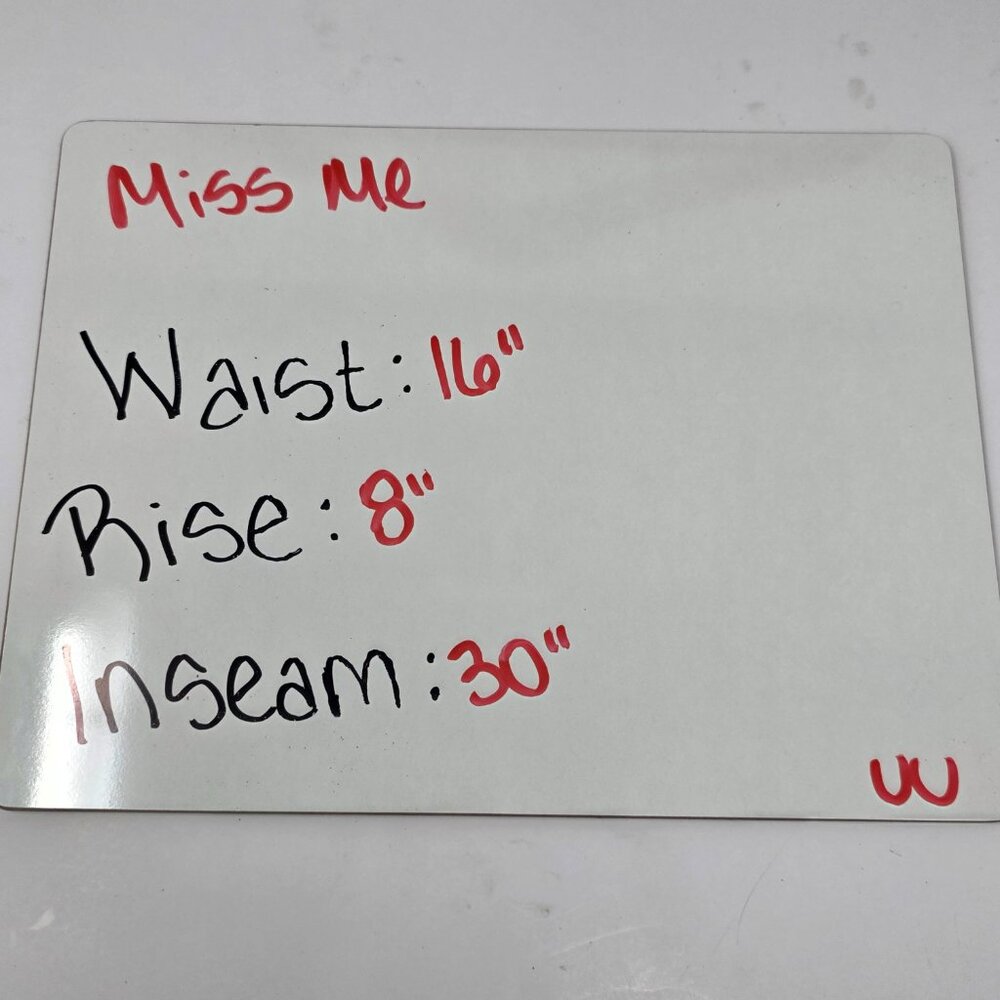 Miss Me
Waist: 16"
Rise: 8"
Inseam: 30"
UU